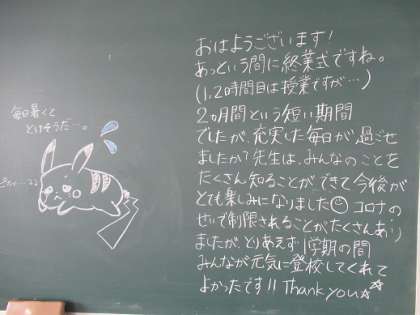 おはようございます!
あっという間に終業式ですね。
(1,2時間目は授業ですが…)
2ヵ月間という短い期間
でしたが、充実した毎日が過ごせ
ましたか?先生は、みんなのことを
たくさん知ることができて今後が
とても楽しみになりました☺コロナの
せいで制限されることがたくさんあり
ましたが、とりあえず1学期の間
みんなが元気に登校してくれて
よかったです!!Thank you☆☆
毎日暑くて
とけそうだ…。